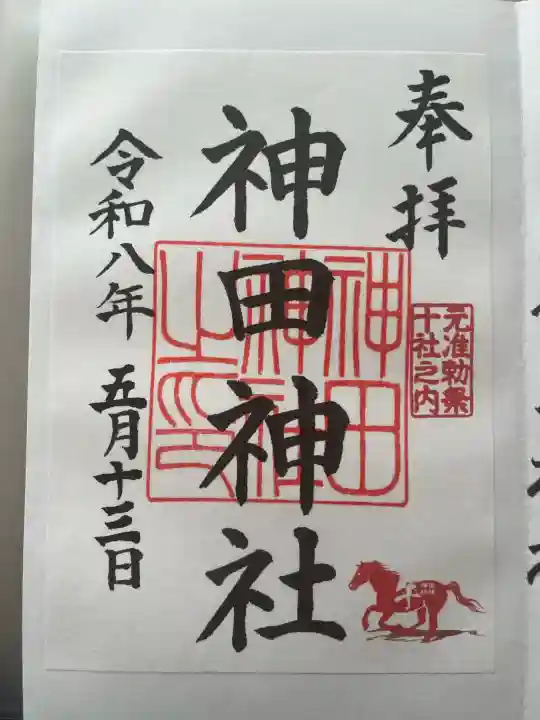 奉拝
元准勅祭
十社之内
神田神社
神田
神社
之印
令和八年 五月十三日